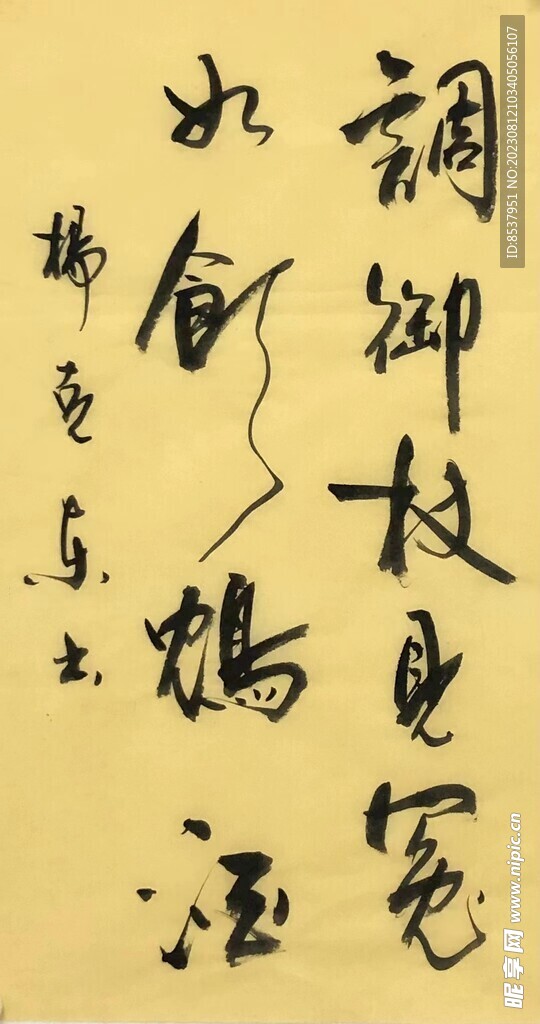 調御杖見冤
如飲鴆酒
楊克東書
ID:8537951 NO:20230812103405056107
昵享网 www.nipic.cn